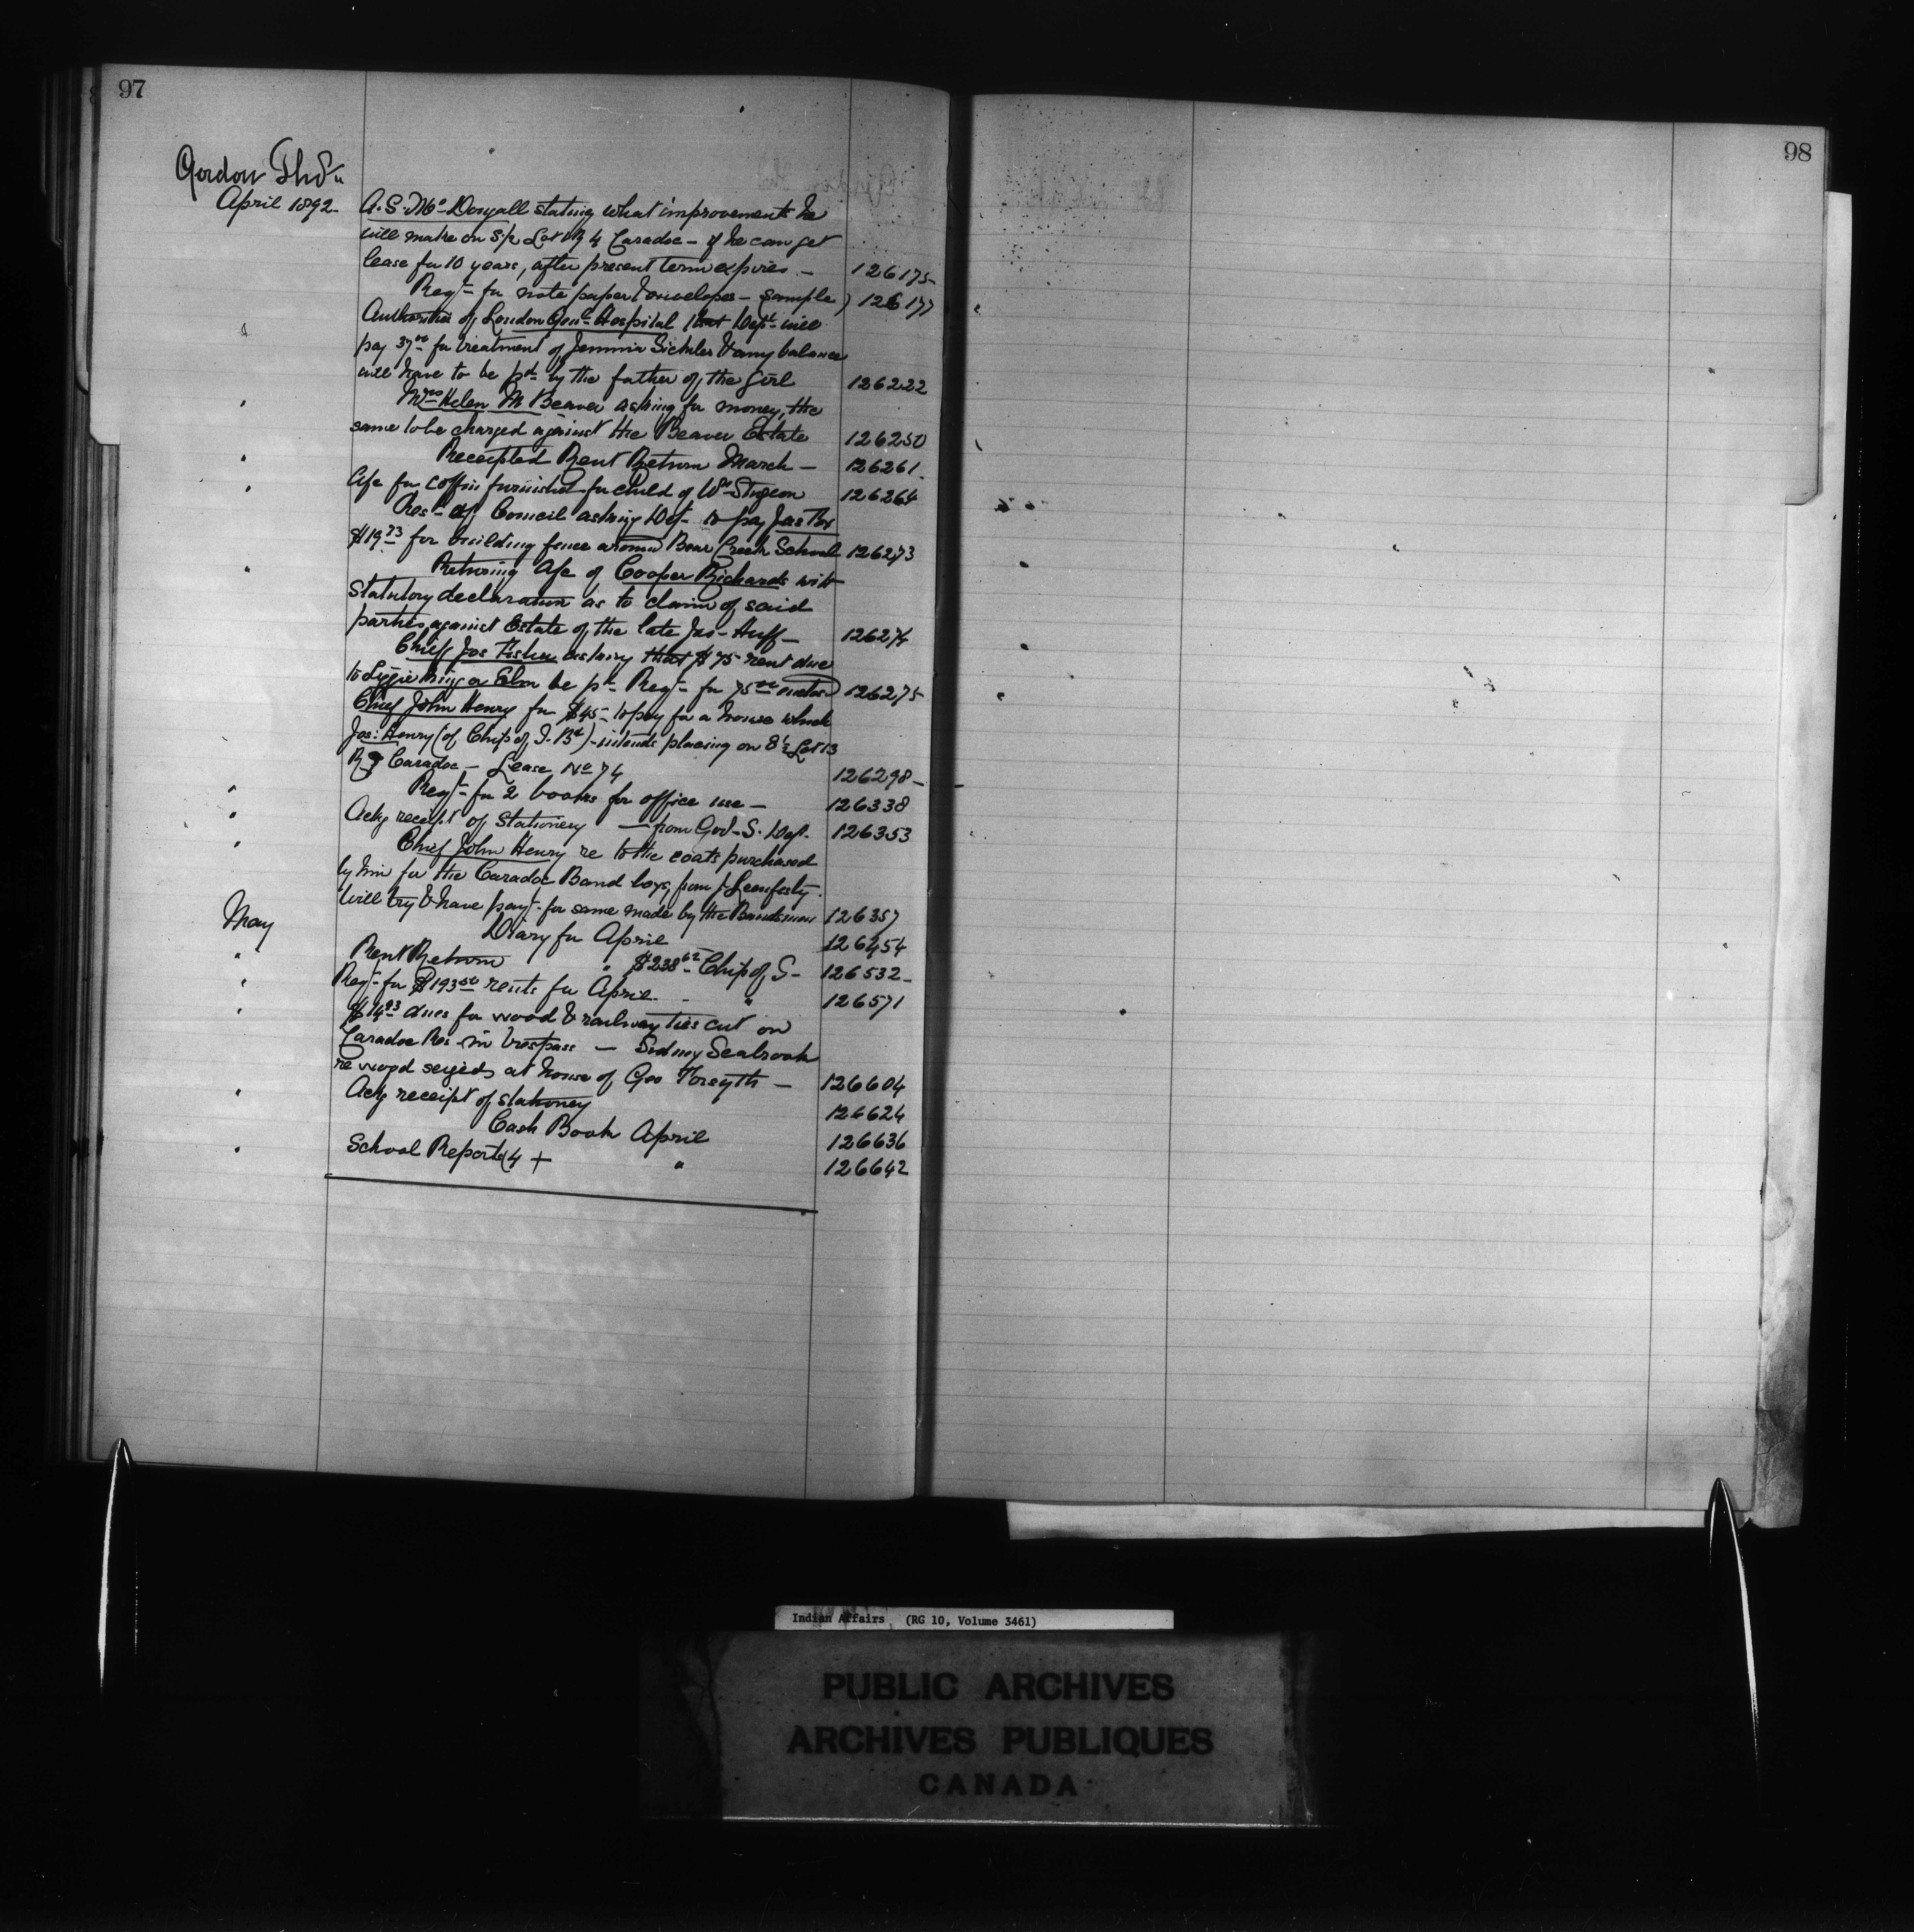 97
98
Gordon Thos
April 1892 A. S. McDougall stating what improvements he
will make on S/2 Lot R 4 Caradoc – if he can get
lease for 10 years, after present term expires – 126175
Reqn for note paper & envelopes – sample) 126177
Authorities of London Genl Hospital that Dept will
pay 37.00 for treatment of Jemmie Sickles & any balance
will have to be pd by the father of the girl 126222
Mrs Helen M Beaver asking for money, the
same to be charged against the Beaver Estate 126250
Receipted Rent Return March – 126261
" A/c for coffin furnished for child of Wm Sturgeon 126264
Resn of Council asking Dept to pay Jas Fox
$19.73 for building fence around Bear Creek School 126273
" Returning A/c of Cooper Richards with
Statutory declaration as to claim of said
parties against Estate of the late Jas Huff – 126274
Chief Jos Fisher asking that $75 rent due
to be pd Reqn for 75.00 enclosed 126275
Chief John Henry for $45 – to pay for a house which
Jos: Henry (of Chips of T. Bd) – intends placing on Lot 13
R 9 Caradoc – Lease No 74 126298
" Reqn for 2 books for office use – 126338
" Ackg receipt of Stationery – from Gov – S. Dept. 126353
" Chief John Henry re to the coats purchased
by him for the Caradoc Band boys, from
Will try & have payt for same made by the Bandsmen 126357
May Diary for April 126454
" Rent Return " $238.62 Chip of S – 126532
" Reqn for $193.50 rents for April. – " 126571
" $14.93 dues for wood & railway ties cut on
Caradoc Res – in trespass – Sidney Seabrook
re wood seized at house of Geo Forsyth – 126604
" Ackg receipt of stationery 126624
Cash Book April 126636
" School Reports (4 + " 126642
Indian Affairs (RG 10, Volume 3461)
PUBLIC ARCHIVES
ARCHIVES PUBLIQUES
CANADA